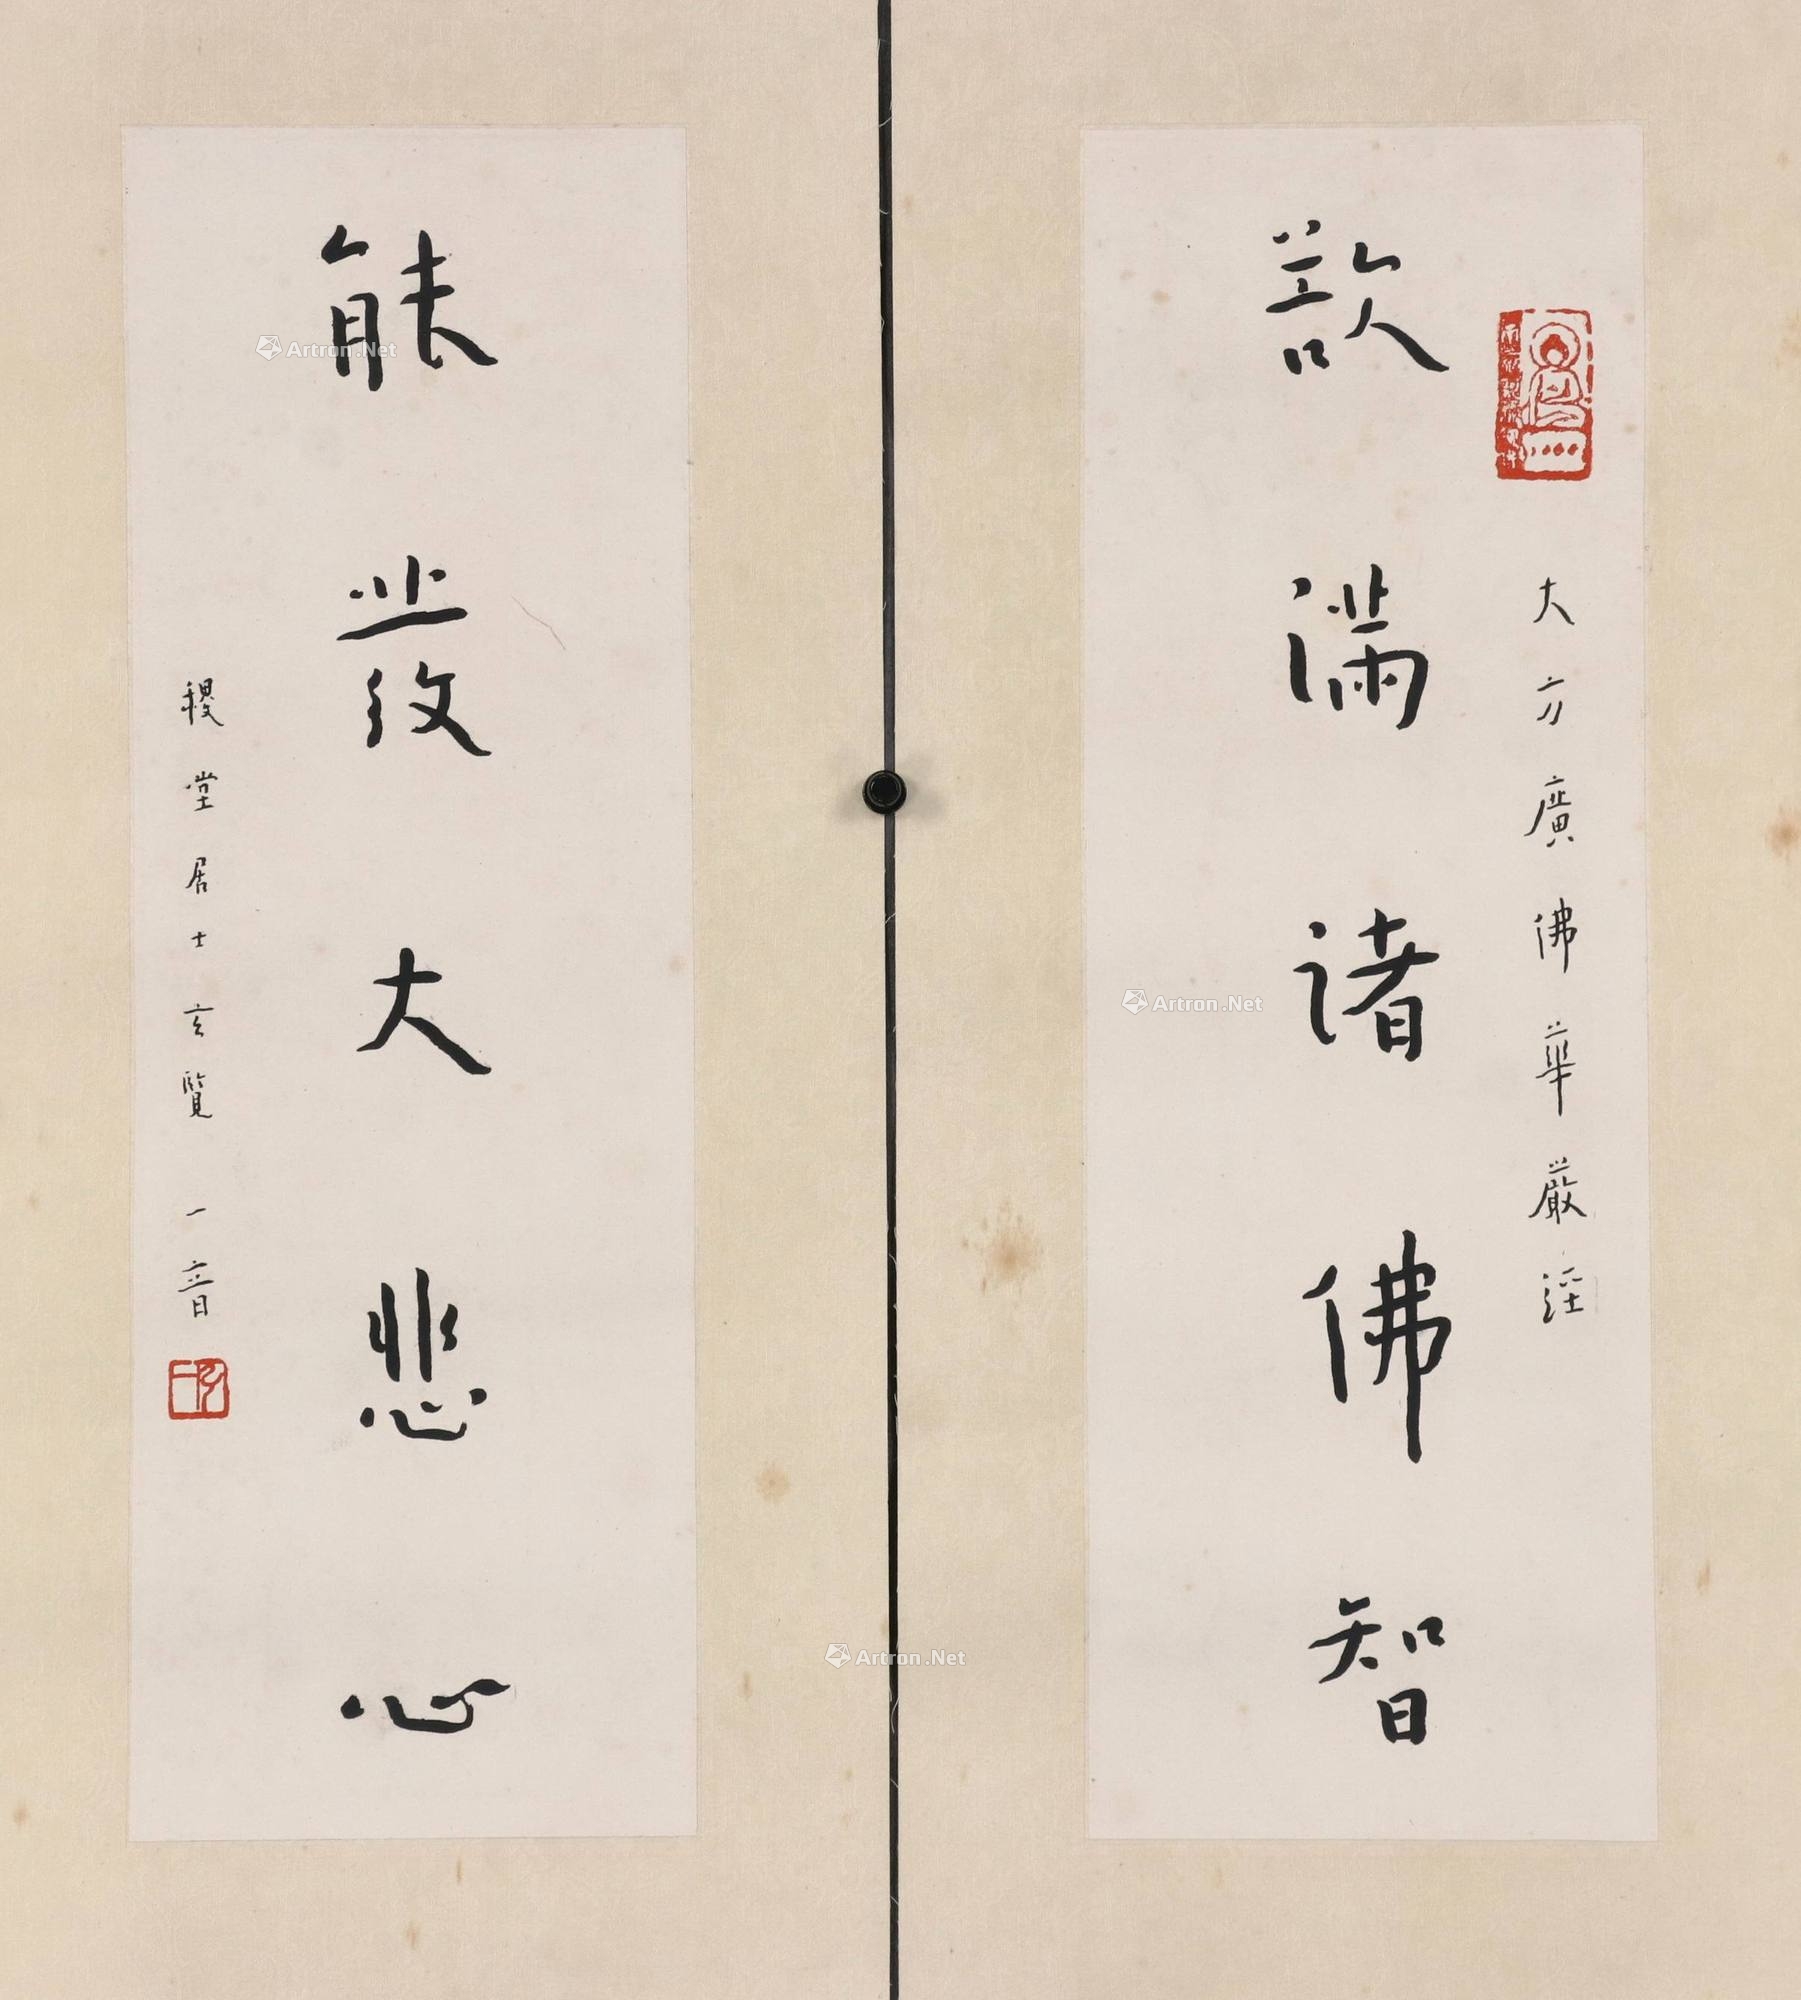 大方廣佛華嚴經
滿諸佛智
能發大悲心
稷堂居士玄覽 一音
弘一
Artron.Net
Artron.Net
Artron.Net